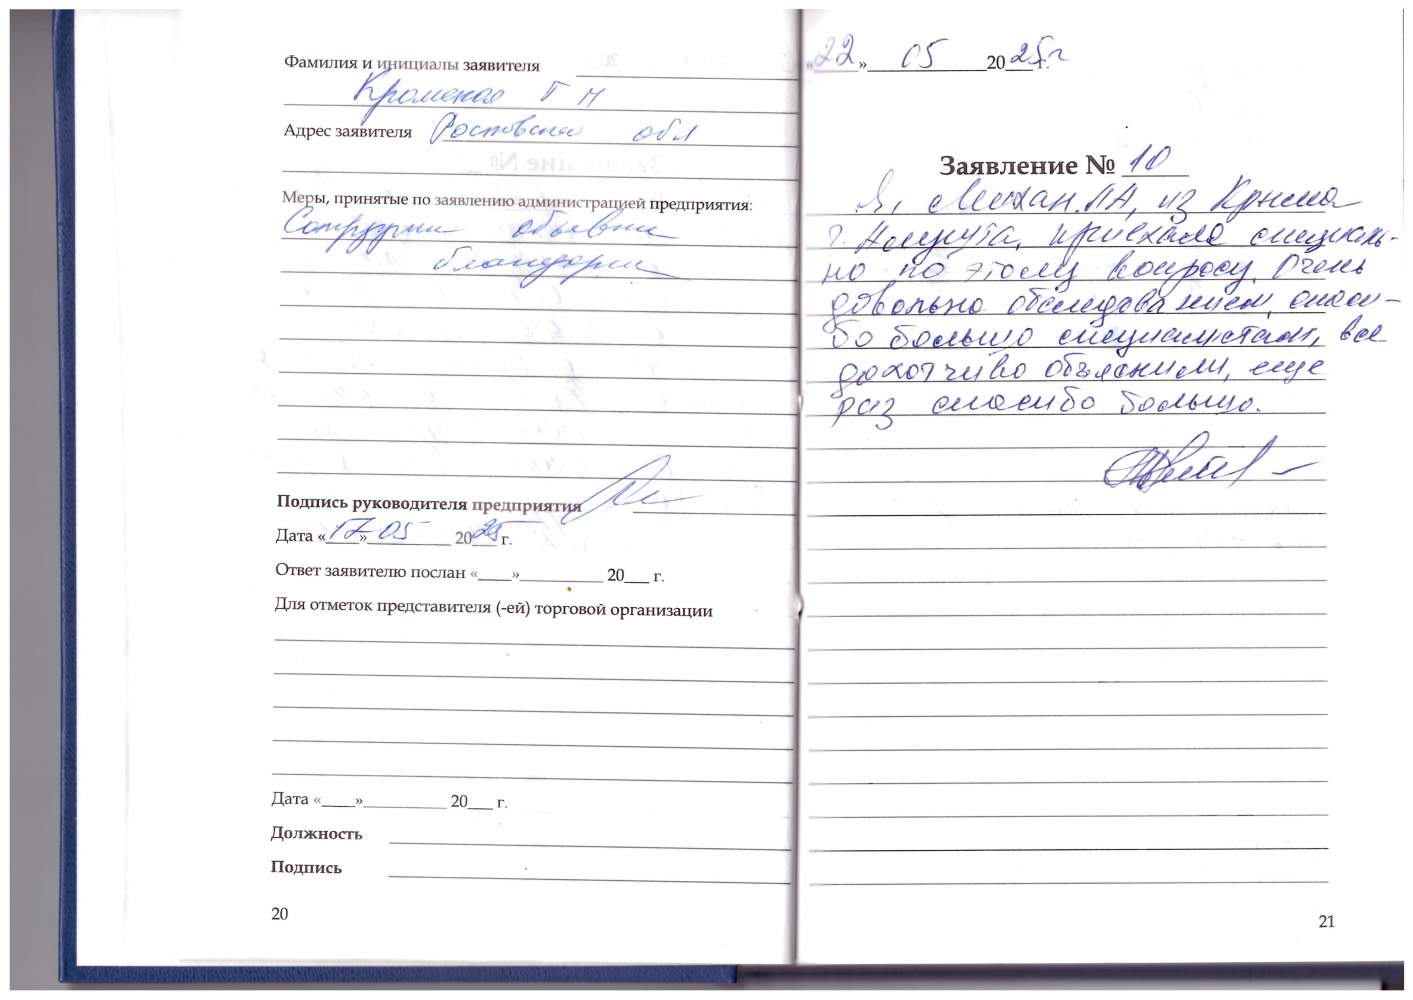 Фамилия и инициалы заявителя
Г Н
Адрес заявителя Ростовская обл
Меры, принятые по заявлению администрацией предприятия:
Подпись руководителя предприятия
Дата «17» 05 2025 г.
Ответ заявителю послан «____»__________ 20___ г.
Для отметок представителя (-ей) торговой организации
Дата «____»__________ 20___ г.
Должность
Подпись
20
«22» 05 2025г г.
Заявление № 10
Я, из Крыма
г. приехала специаль-
но по этому вопросу. Очень
довольна обследованием, спаси-
бо большо специалистам, все
доходчиво объяснили, еще
раз спасибо большо.
21